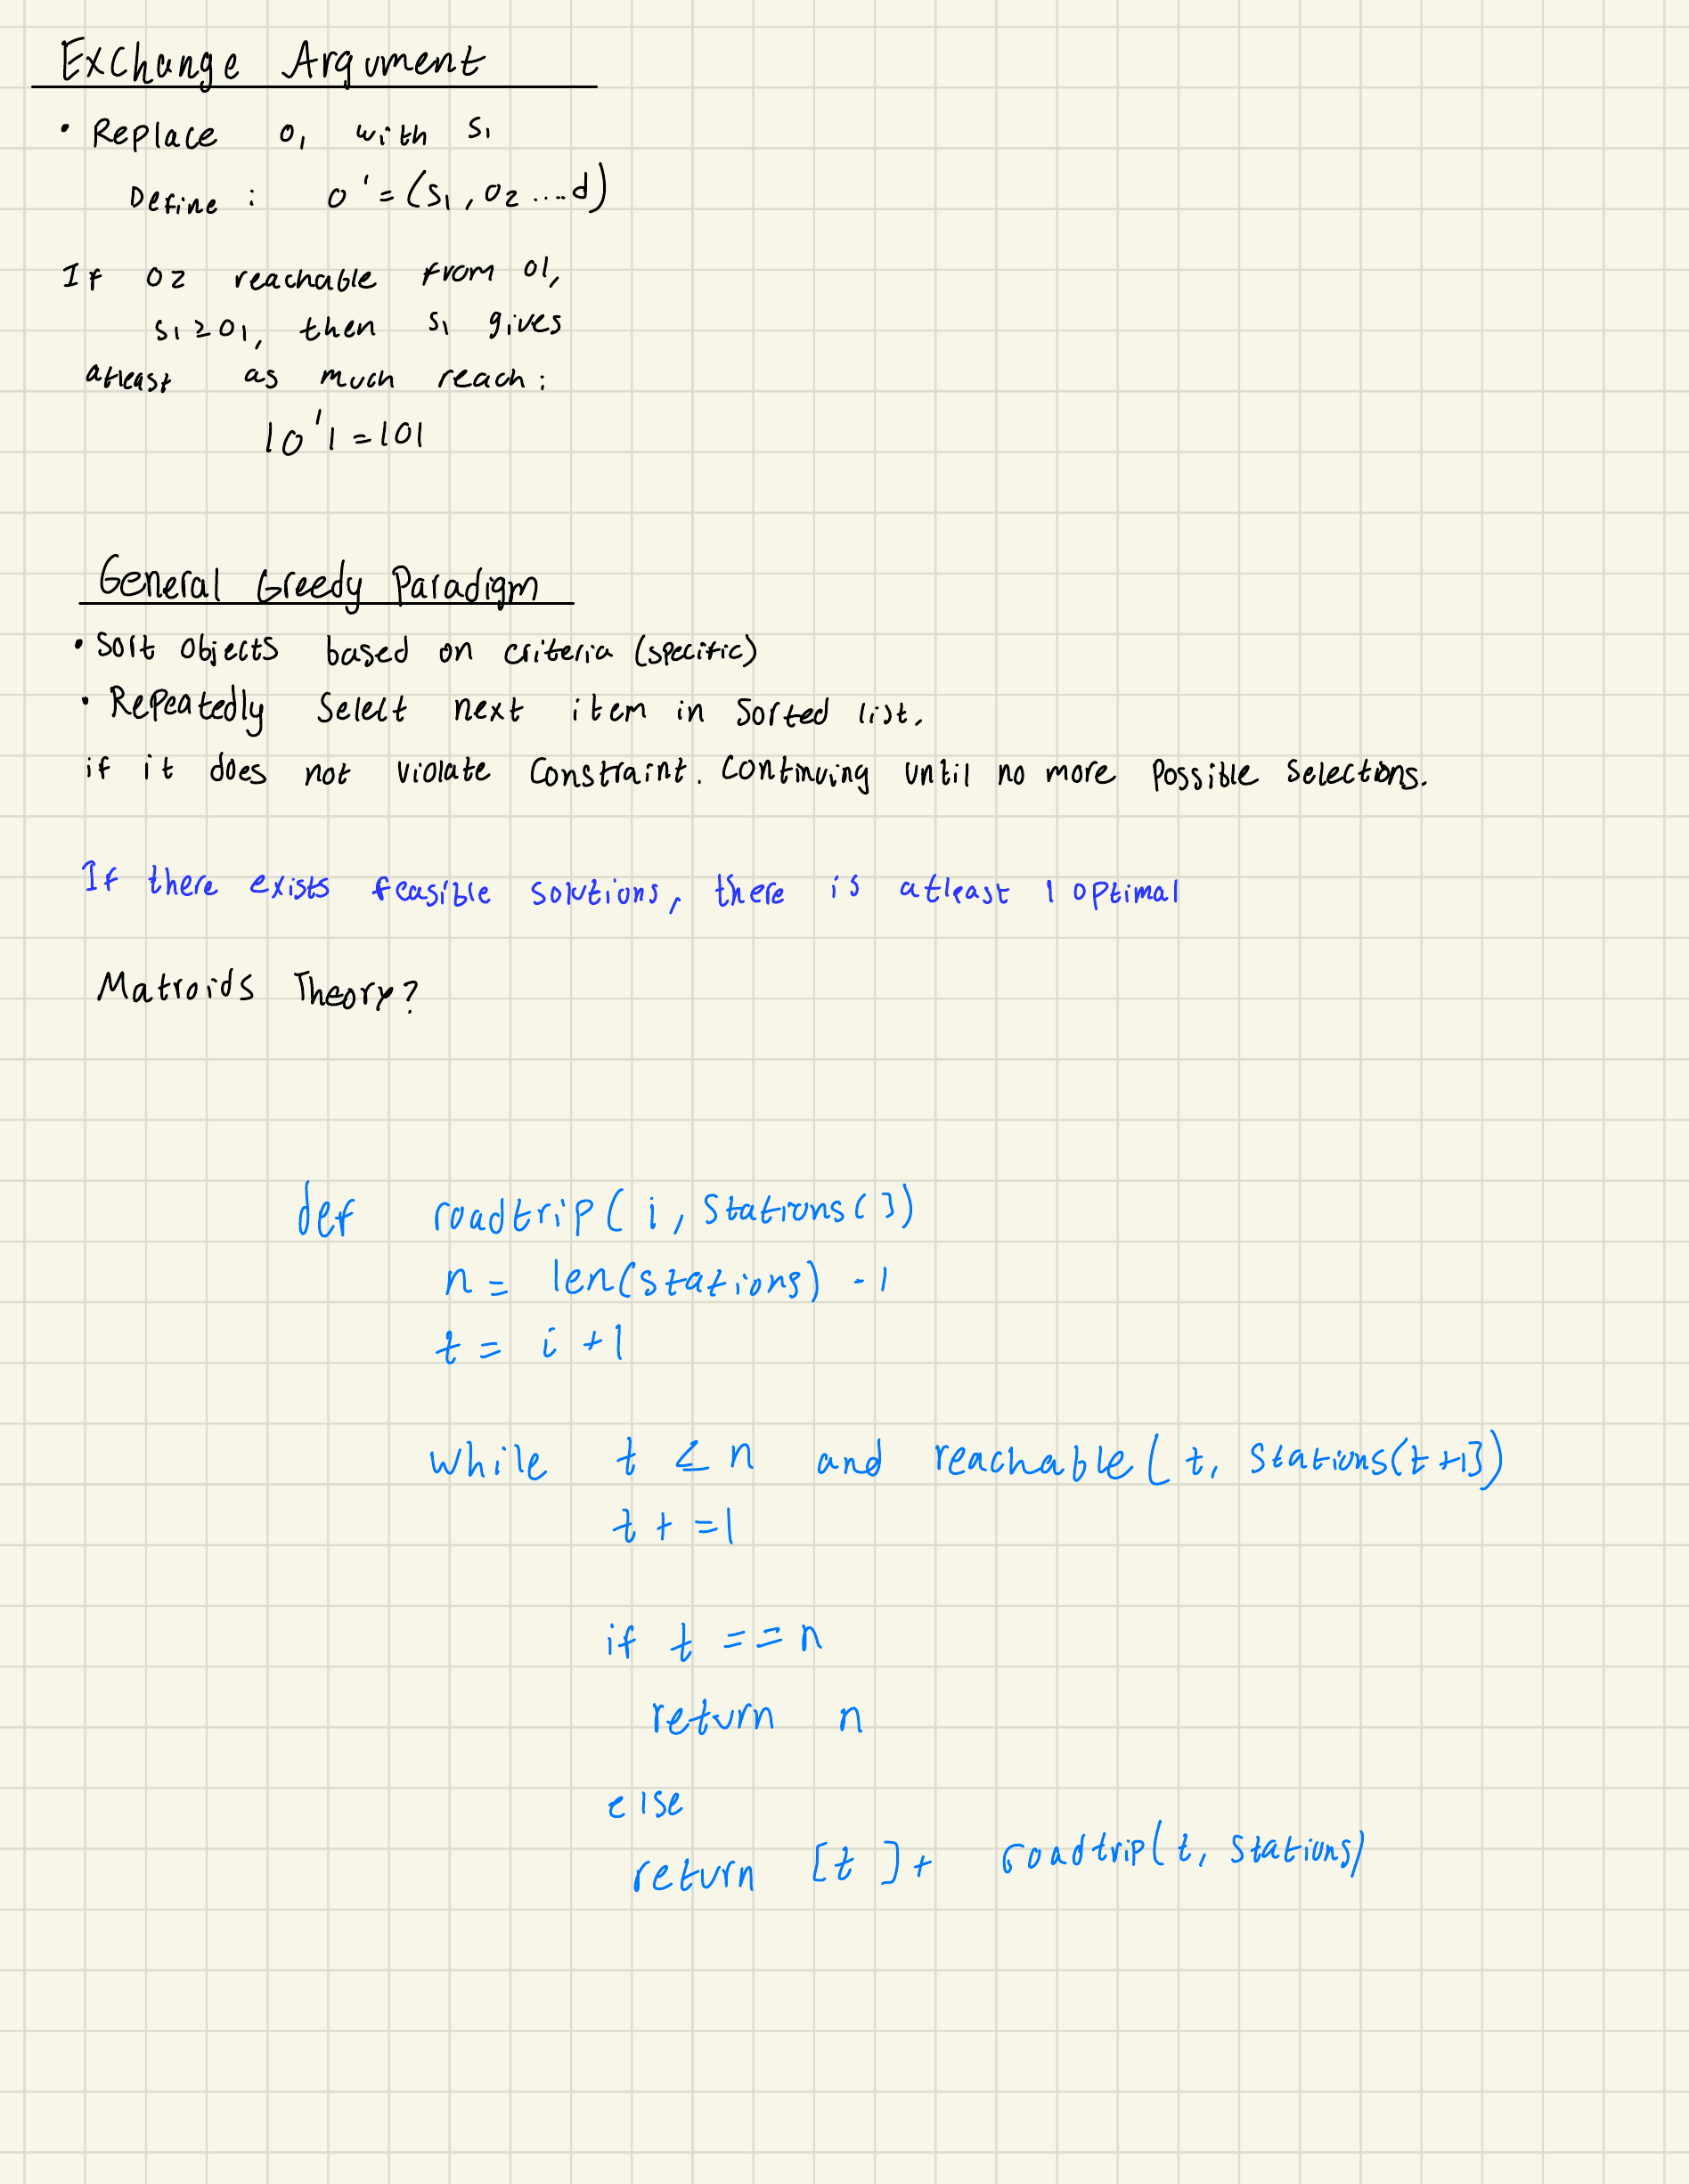 Exchange Argument
• Replace o₁ with s₁
Define : o' = (s₁, o₂ ....d)
If o2 reachable from o1,
s₁ ≥ o₁, then s₁ gives
atleast as much reach:
|o'| = |o|
General Greedy Paradigm
• Sort objects based on criteria (specific)
• Repeatedly select next item in sorted list.
if it does not violate constraint. Continuing until no more possible selections.
If there exists feasible solutions, there is atleast 1 optimal
Matroids Theory?
def roadtrip( i, stations[])
n = len(stations) - 1
t = i + 1
while t ≤ n and reachable( t, stations[t+1])
t += 1
if t == n
return n
else
return [t] + roadtrip(t, stations)